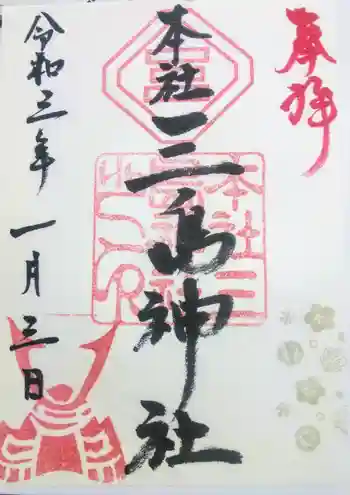 奉拝
本社三島神社
令和三年一月三日